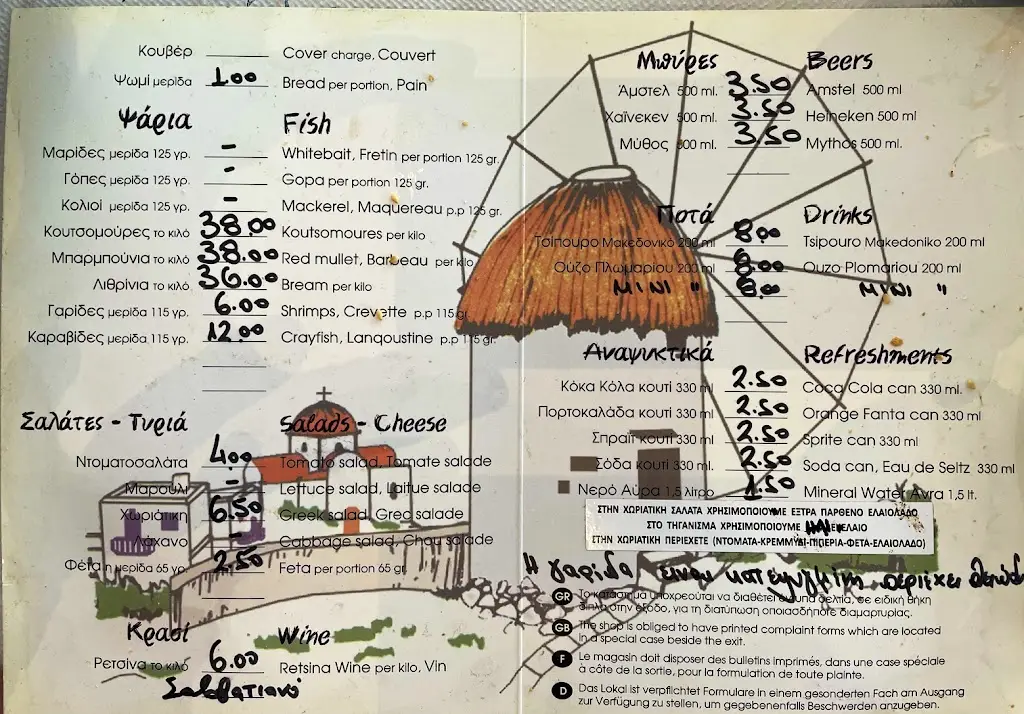 Κουβέρ Cover charge, Couvert
Ψωμί μερίδα 1.00 Bread per portion, Pain
Ψάρια Fish
Μαρίδες μερίδα 125 γρ. - Whitebait, Fretin per portion 125 gr.
Γόπες μερίδα 125 γρ. - Gopa per portion 125 gr.
Κολιοί μερίδα 125 γρ. - Mackerel, Maquereau p.p 125 gr.
Κουτσομούρες το κιλό 38.00 Koutsomoures per kilo
Μπαρμπούνια το κιλό 38.00 Red mullet, Barbeau per kilo
Λιθρίνια το κιλό 36.00 Bream per kilo
Γαρίδες μερίδα 115 γρ. 6.00 Shrimps, Crevette p.p 115 gr.
Καραβίδες μερίδα 115 γρ. 12.00 Crayfish, Langoustine p.p 115 gr.
Σαλάτες - Τυριά Salads - Cheese
Ντοματοσαλάτα 4.00 Tomato salad, Tomate salade
Μαρούλι - Lettuce salad, Laitue salade
Χωριάτικη 6.50 Greek salad, Greg salade
Λάχανο - Cabbage salad, Chou salade
Φέτα η μερίδα 65 γρ. 2.50 Feta per portion 65 gr.
Κρασί Wine
Ρετσίνα το κιλό 6.00 Retsina Wine per kilo, Vin
Σαββατιανό
Μπύρες Beers
Άμστελ 500 ml. 3.50 Amstel 500 ml
Χαϊνεκεν 500 ml. 3.50 Heineken 500 ml
Μύθος 500 ml. 3.50 Mythos 500 ml.
Ποτά Drinks
Τσίπουρο Μακεδονικό 200 ml 8.00 Tsipouro Makedoniko 200 ml
Ούζο Πλωμαρίου 200 ml 8.00 Ouzo Plomariou 200 ml
ΜΙΝΙ " 8.00 ΜΙΝΙ "
Αναψυκτικά Refreshments
Κόκα Κόλα κουτί 330 ml 2.50 Coca Cola can 330 ml.
Πορτοκαλάδα κουτί 330 ml 2.50 Orange Fanta can 330 ml
Σπράιτ κουτί 330 ml 2.50 Sprite can 330 ml
Σόδα κουτί 330 ml. 2.50 Soda can, Eau de Seltz 330 ml
Νερό Αύρα 1,5 λίτρο 1.50 Mineral Water Avra 1,5 lt.
ΣΤΗΝ ΧΩΡΙΑΤΙΚΗ ΣΑΛΑΤΑ ΧΡΗΣΙΜΟΠΟΙΟΥΜΕ ΕΞΤΡΑ ΠΑΡΘΕΝΟ ΕΛΑΙΟΛΑΔΟ
ΣΤΟ ΤΗΓΑΝΙΣΜΑ ΧΡΗΣΙΜΟΠΟΙΟΥΜΕ ΗΛΙΕΛΑΙΟ
ΣΤΗΝ ΧΩΡΙΑΤΙΚΗ ΠΕΡΙΕΧΕΤΕ (ΝΤΟΜΑΤΑ-ΚΡΕΜΜΥΔΙ-ΠΙΠΕΡΙΑ-ΦΕΤΑ-ΕΛΑΙΟΛΑΔΟ)
Η γαρίδα είναι κατεψυγμένη περιέχει
GR Το κατάστημα υποχρεούται να διαθέτει έντυπα δελτία, σε ειδική θήκη
δίπλα στην έξοδο, για τη διατύπωση οποιασδήποτε διαμαρτυρίας.
GB The shop is obliged to have printed complaint forms which are located
in a special case beside the exit.
F Le magasin doit disposer des bulletins imprimés, dans une case spéciale
à côte de la sortie, pour la formulation de toute plainte.
D Das Lokal ist verpflichtet Formulare in einem gesonderten Fach am Ausgang
zur Verfügung zu stellen, um gegebenenfalls Beschwerden anzugeben.